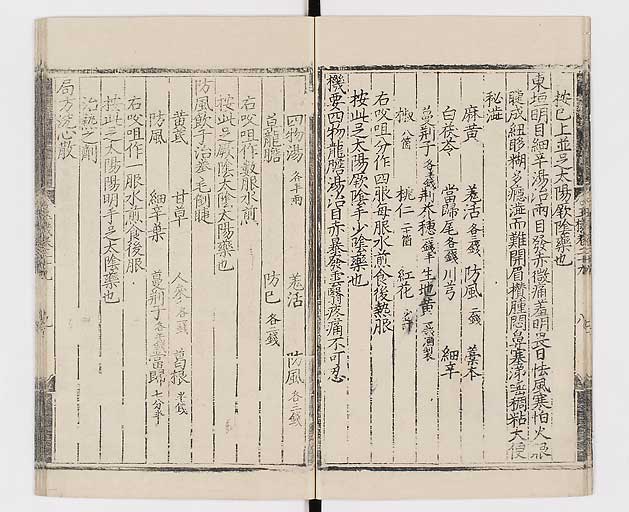 按已上並足太陽厥陰藥也
東垣明目細辛湯治兩目發赤微痛羞明畏日怯風寒怕火眼
睫成紐眵糊多隱澁而難開眉攢腫悶鼻塞涕唾稠粘大便
秘澁
麻黃 羌活各三錢 防風二錢 藁本
白茯苓 當歸尾各一錢 川芎 細辛
蔓荊子各五分 荊芥穗 生地黃酒製
椒八箇 桃仁二十箇 紅花少許
右㕮咀分作四服每服水煎食後熱服
按此足太陽厥陰手少陰藥也
機要四物龍膽湯治目赤暴發雲翳疼痛不可忍
四物湯各半兩 羌活 防風各三錢
草龍膽 防已各二錢
右㕮咀作數服水煎
按此足厥陰太陰太陽藥也
防風飲子治拳毛倒睫
黃芪 甘草 人參各一錢 葛根半錢
防風 細辛葉 蔓荊子各五分 當歸七分半
右㕮咀作一服水煎食後服
按此足太陽陽明手足太陰藥也
治熱之劑
局方洗心散